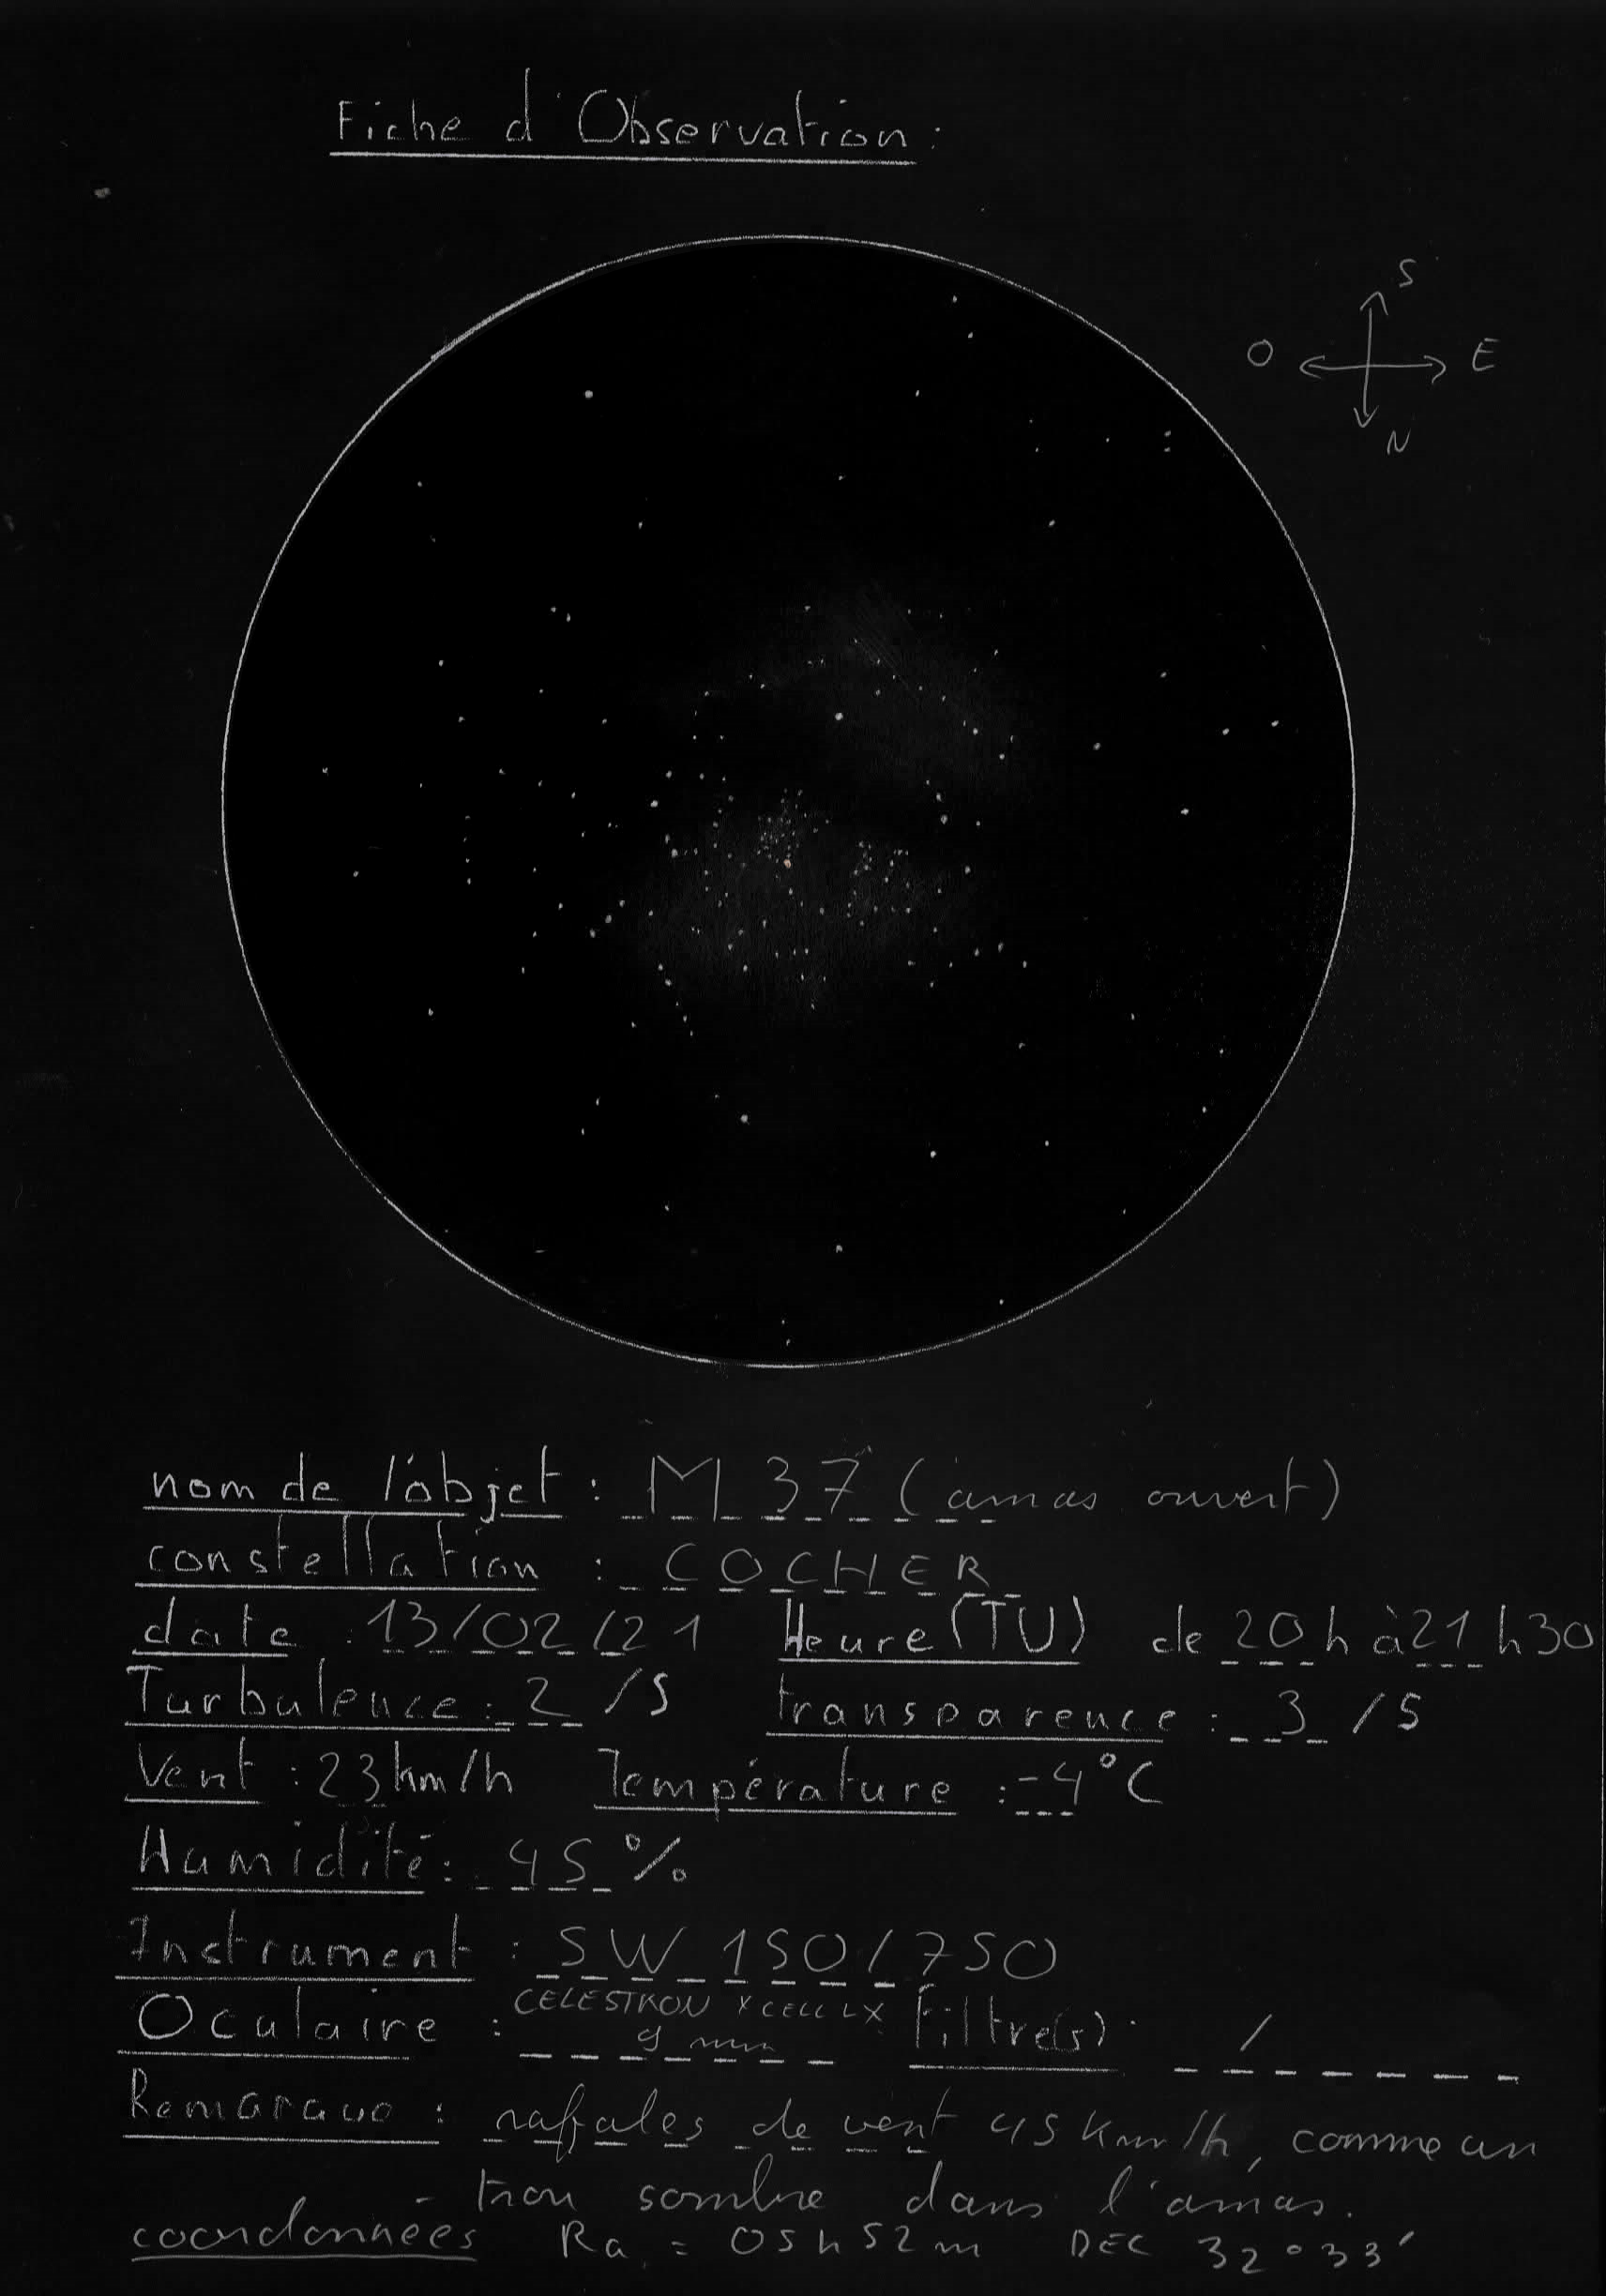 Fiche d'Observation :
S
O E
N
nom de l'objet : M 37 (amas ouvert)
constellation : COCHER
date : 13/02/21 Heure (TU) de 20 h à 21 h 30
Turbulence : 2 /5 transparence : 3 /5
Vent : 23 km/h Température : -4°C
Humidité : 45 %
Instrument : SW 150/750
Oculaire : CELESTRON X CELL LX 9 mm Filtre(s) : /
Remarque : rafales de vent 45 Km/h, comme un
trou sombre dans l'amas.
coordonnées Ra = 05h52m DEC 32°33'